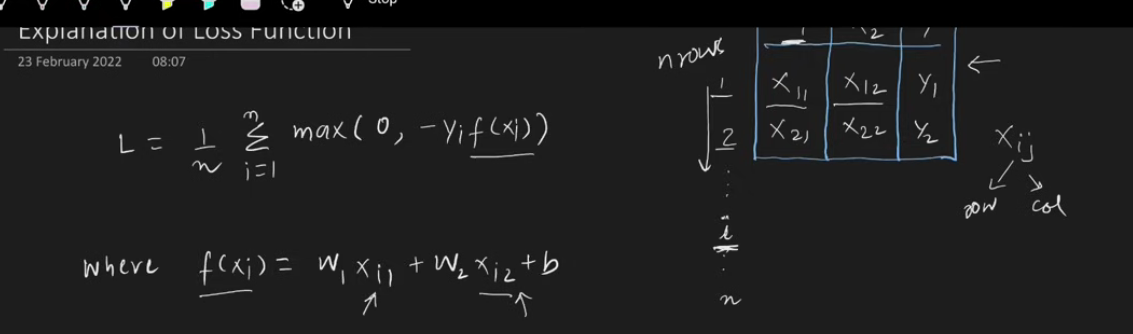 Stop
Explanation of Loss Function
23 February 2022 08:07
L = 1/n Σ_{i=1}^{n} max(0, -yᵢ f(xᵢ))
where f(xᵢ) = W₁ xᵢ₁ + W₂ xᵢ₂ + b
n rows
1 X₁₁ X₁₂ Y₁
2 X₂₁ X₂₂ Y₂
i
n
Xᵢⱼ
row col